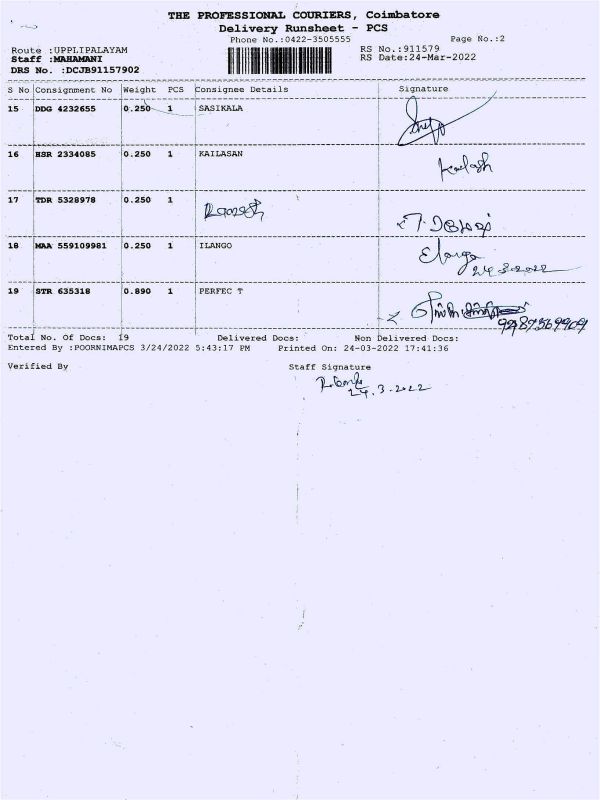 THE PROFESSIONAL COURIERS, Coimbatore
Delivery Runsheet - PCS
Phone No.:0422-3505555 Page No.:2
Route :UPPLIPALAYAM RS No.:911579
Staff :MAHAMANI RS Date:24-Mar-2022
DRS No. :DCJB91157902
S No Consignment No Weight PCS Consignee Details Signature
15 DDG 4232655 0.250 1 SASIKALA
16 HSR 2334085 0.250 1 KAILASAN Kailash
17 TDR 5328978 0.250 1 Ramesh
18 MAA 559109981 0.250 1 ILANGO Elango
24.3.2022
19 STR 635318 0.890 1 PERFEC T
Total No. Of Docs: 19 Delivered Docs: Non Delivered Docs:
Entered By :POORNIMAPCS 3/24/2022 5:43:17 PM Printed On: 24-03-2022 17:41:36
Verified By Staff Signature
24.3.2022